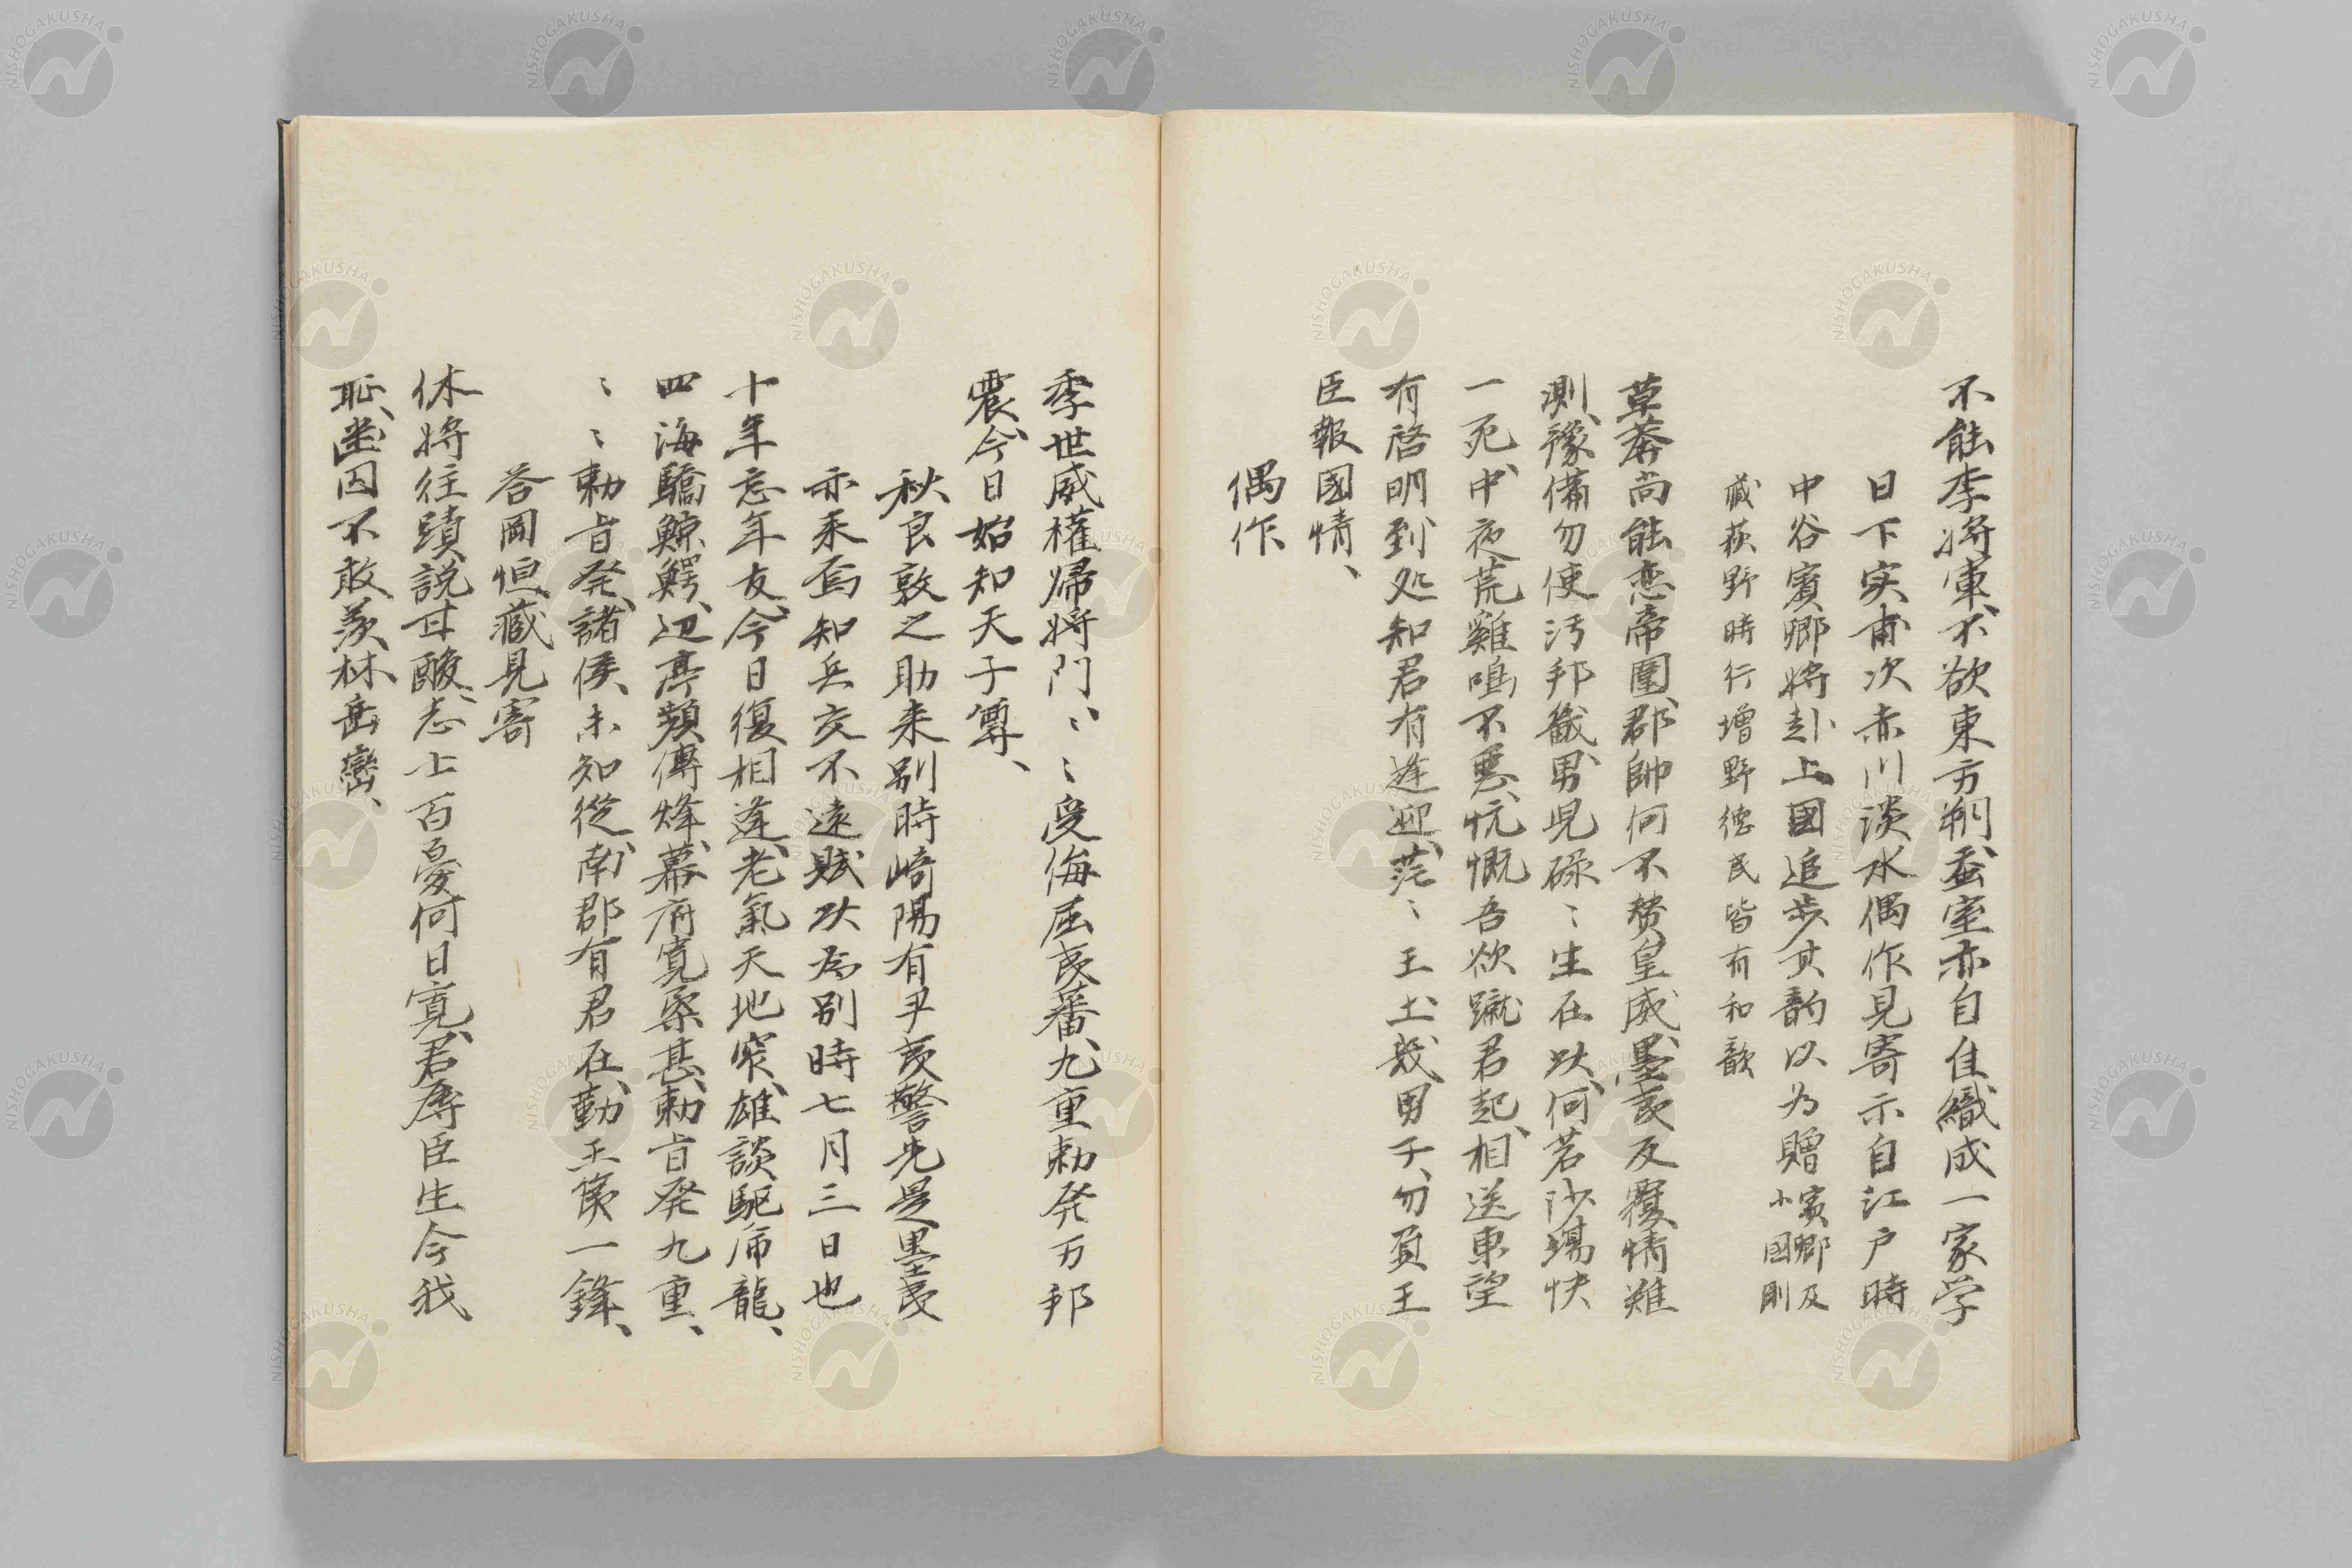 不能李将軍、不欲東方朔、蚕室亦自佳、織成一家学
日下実甫次赤川淡水偶作見寄示自江戸時
中谷賓卿将赴上國追歩其韵以為贈 賓卿及小國剛
蔵荻野時行増野徳民皆有和歌
草莽尚能恋帝閽、郡帥何不賛皇威、墨夷反覆情難
測、豫備勿使汚邦畿、男児碌〻生在以、何若沙場快
一死、中夜荒雞鳴不悪、忼慨吾欲蹴君起、相送東望
有啓明、到処知君有逢迎、茫〻王土幾男子、勿負王
臣報國情、
偶作
季世威権帰将門、〻〻受侮屈夷蕃、九重勅発万邦
震、今日始知天子尊、
秋良敦之助来別時崎陽有尹夷警先是墨夷
亦来焉知兵交不遠賦以為別時七月三日也
十年忘年友、今日復相逢、老氣天地窄、雄談駆席龍、
四海驕鯨鰐、辺亭頻傳烽、幕府寛柔甚、勅旨発九重、
〻〻勅旨発、諸侯未知従、南郡有君在、勤王僕一鋒、
答岡恒蔵見寄
休将往蹟説甘酸、志士百憂何日寛、君辱臣生今我
恥、幽囚不敢羨林岳巒、
NISHOGAKUSHA